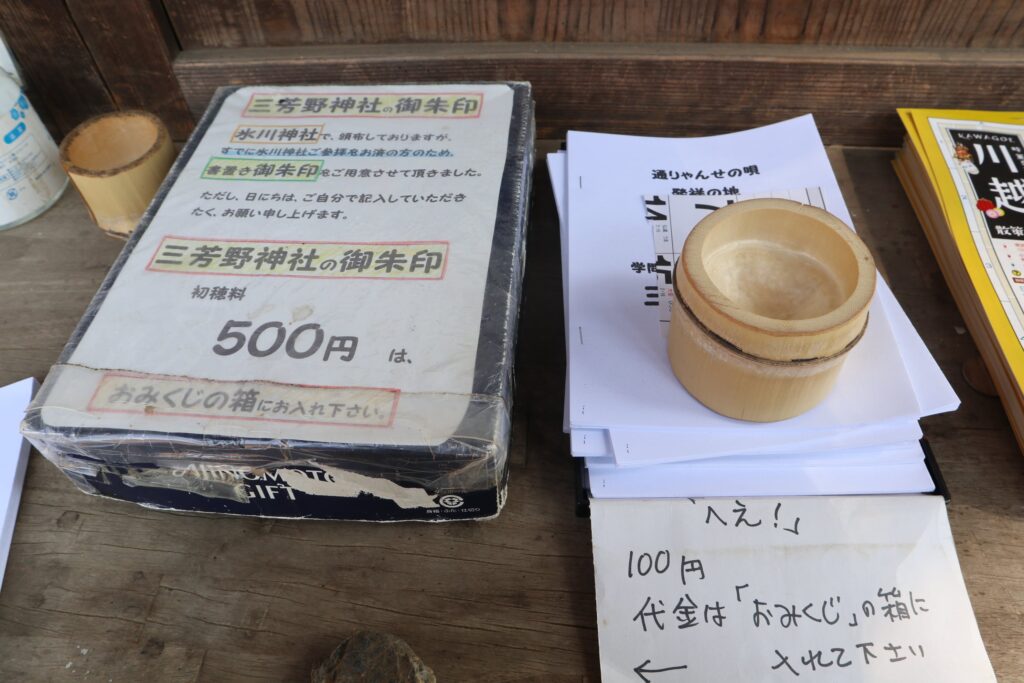 三芳野神社の御朱印
氷川神社で、頒布しておりますが、
すでに氷川神社ご参拝をお済の方のため、
書置き御朱印をご用意させて頂きました。
ただし、日にちは、ご自分で記入していただき
たく、お願い申し上げます。
三芳野神社の御朱印
初穂料
500円 は、
おみくじの箱にお入れ下さい。
AJINOMOTO
GIFT
通りゃんせの唄
発祥の地
「へえ！」
100円
代金は「おみくじ」の箱に
← 入れて下さい
KAWAGOE
川越
散策